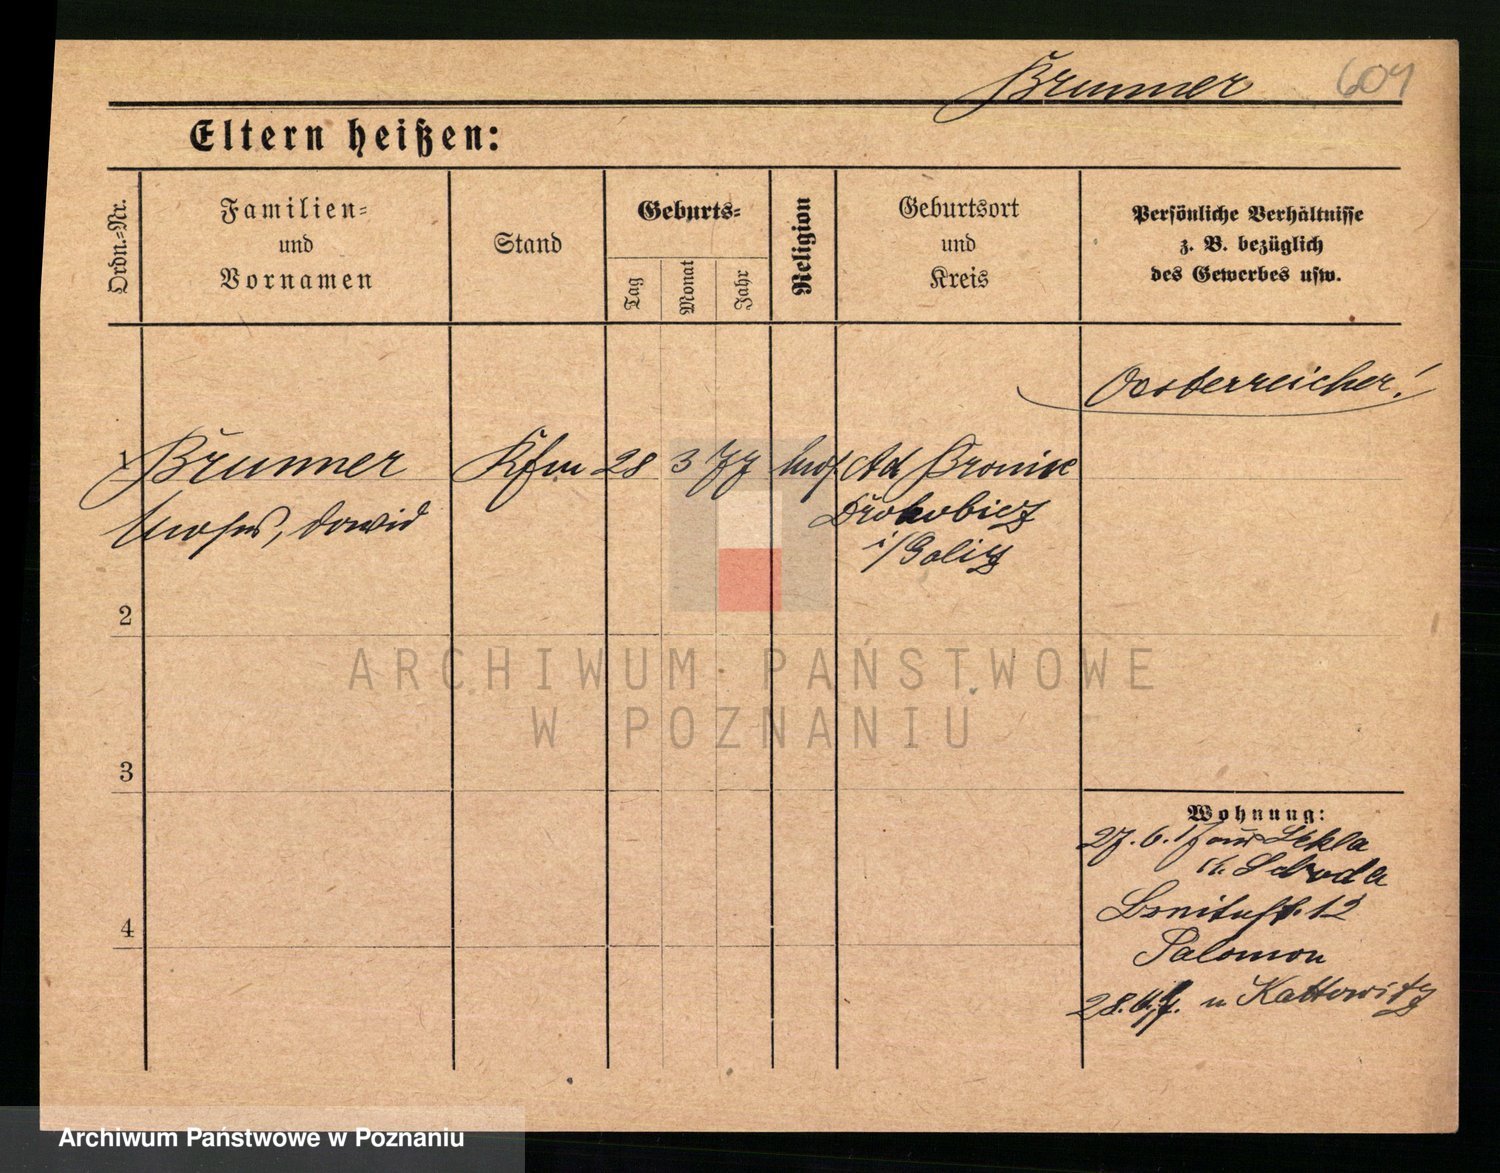 Brunner 607
Eltern heißen:
Ordn.-Nr.
Familien-
und
Vornamen
Stand
Geburts-
Tag
Monat
Jahr
Religion
Geburtsort
und
Kreis
Persönliche Verhältnisse
z. B. bezüglich
des Gewerbes usw.
Oesterreicher!
1 Brunner Kfm 28 3 77 mos.
Moses, Dawid
Drohobicz
i/Galiz
2
3
4
Wohnung:
27. 6. 17 aus
Schroda
12
Salomon
n Kattowitz
ARCHIWUM PAŃSTWOWE
W POZNANIU
Archiwum Państwowe w Poznaniu